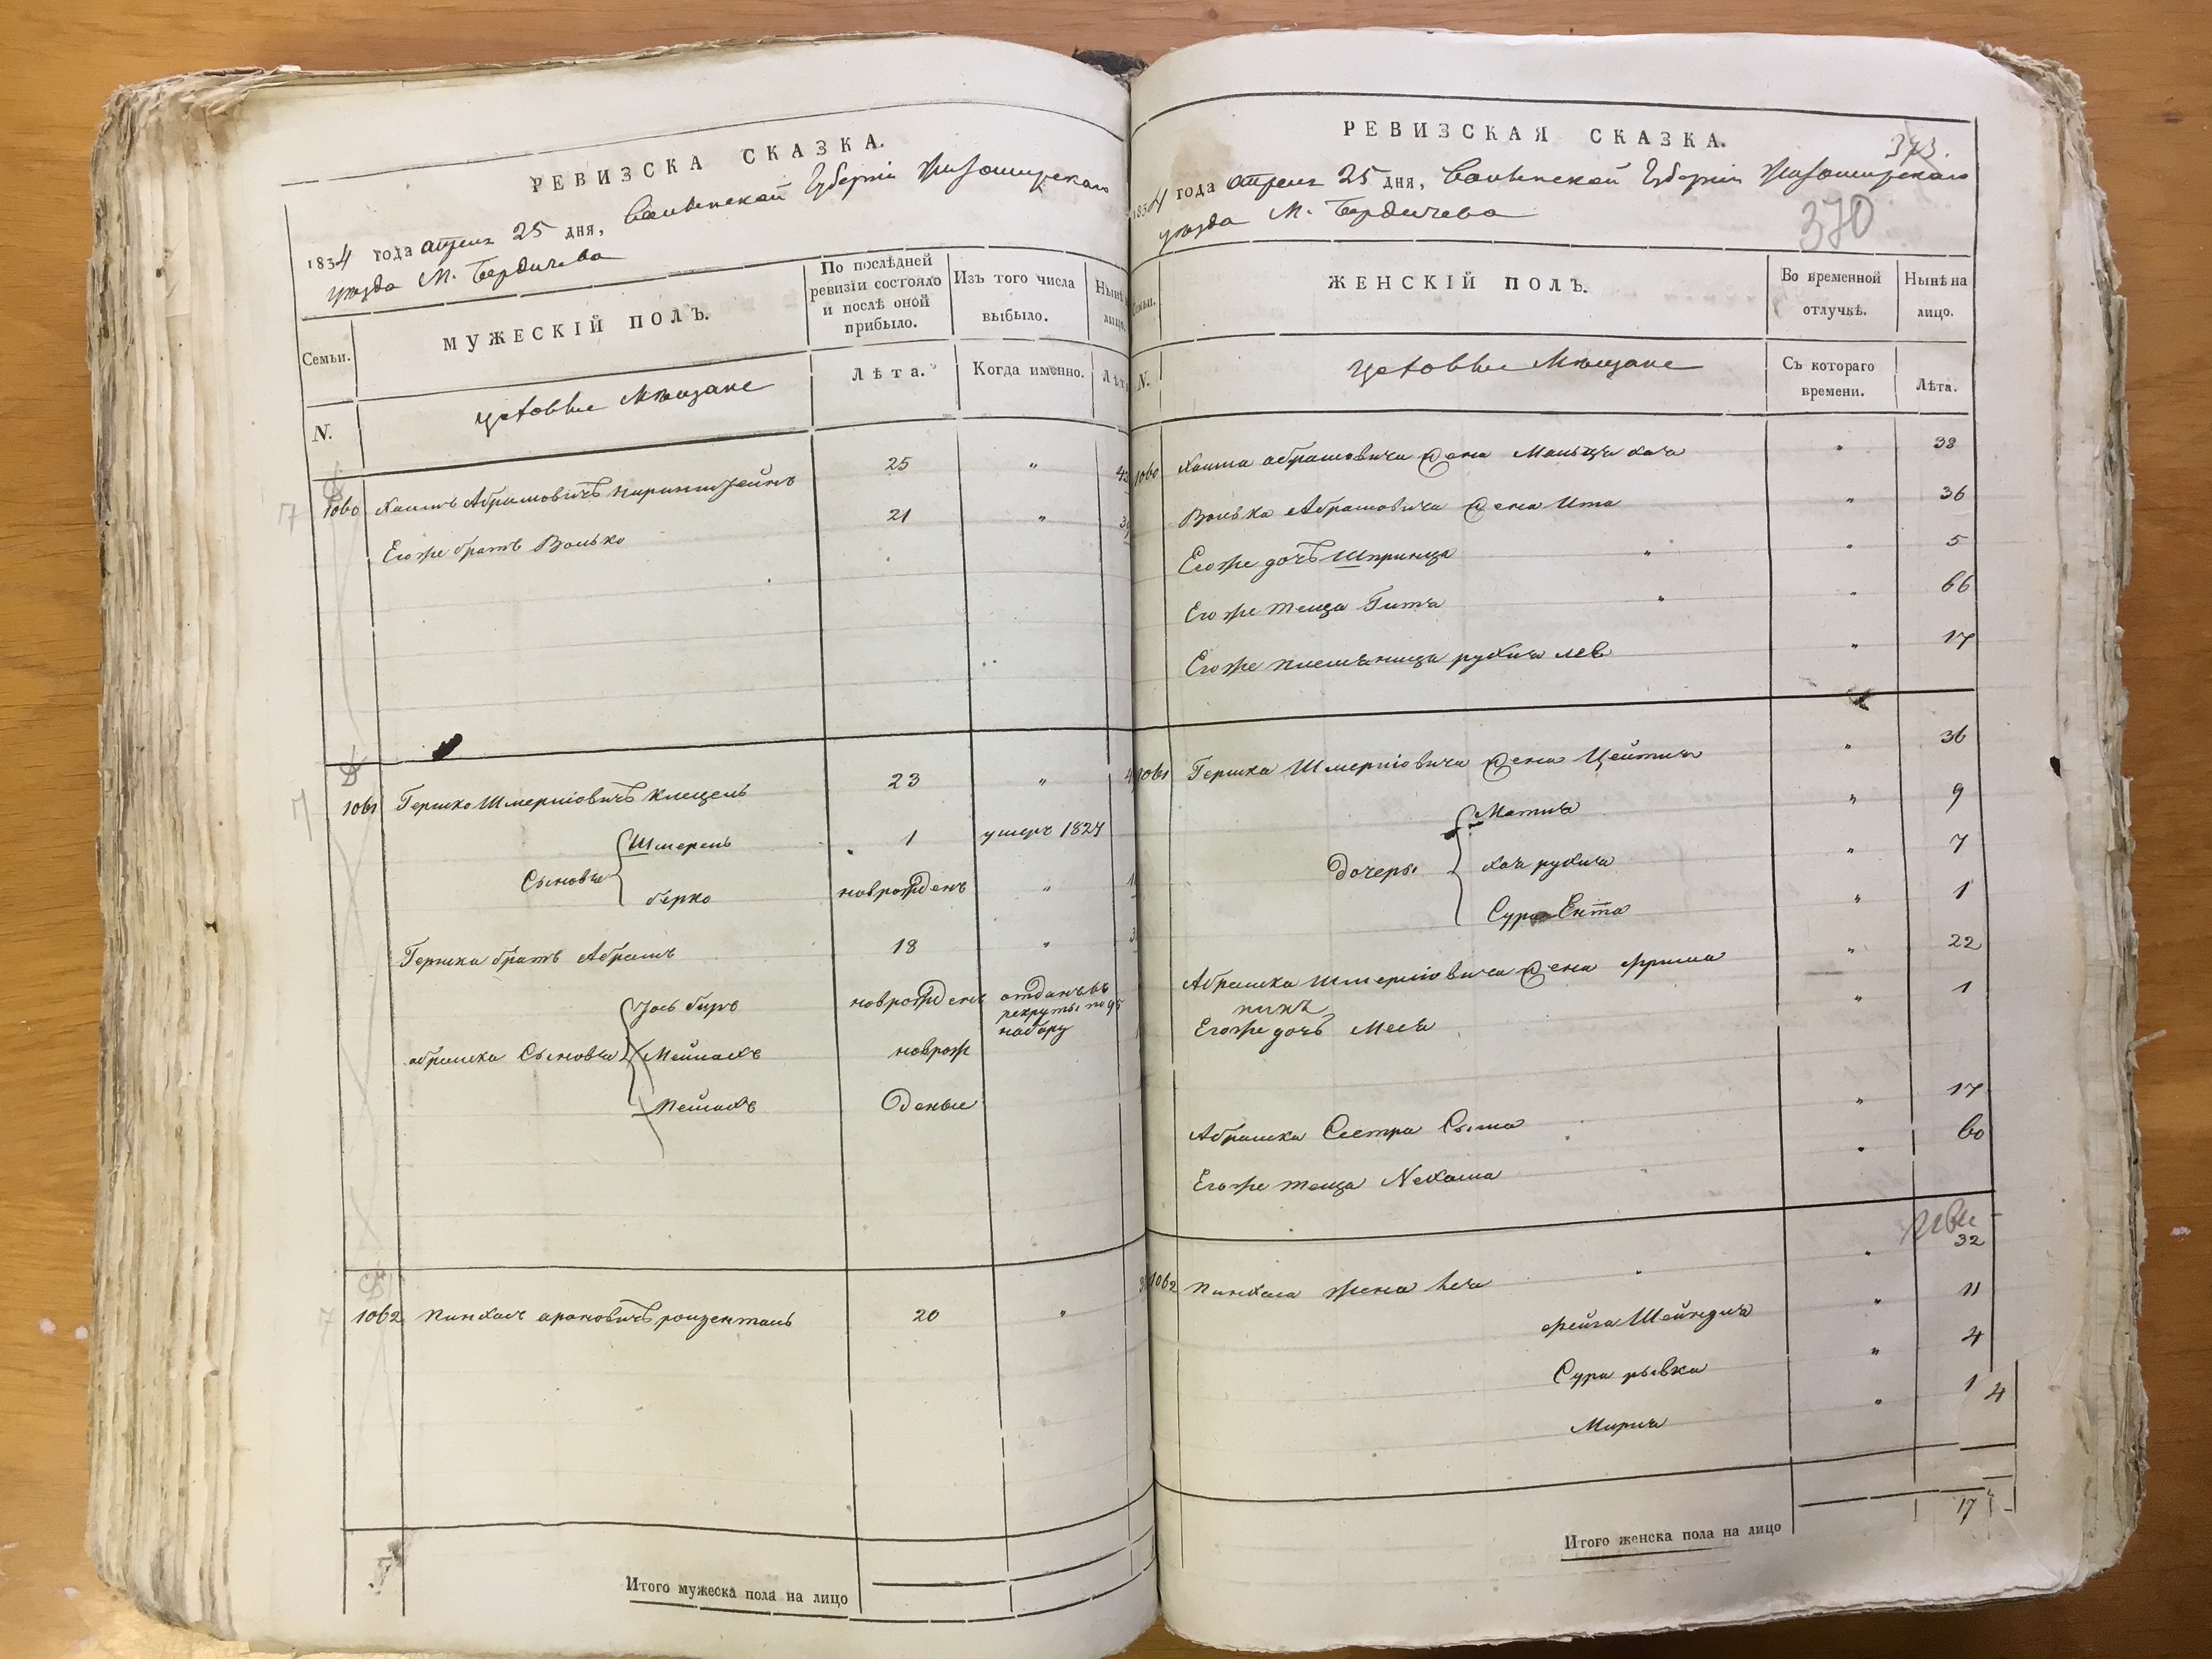 РЕВИЗСКА СКАЗКА.
1834 года апреля 25 дня, Волынской Губернии Житомирского
уезда М. Бердичева
Семьи.
МУЖЕСКІЙ ПОЛЪ.
По послѣдней
ревизіи состояло
и послѣ оной
прибыло.
Изъ того числа
выбыло.
Нынѣ
N.
цеховые Мещане
Лѣта.
Когда именно.
1060 Хаимъ Абрамовичъ 25 "
Его же братъ Волько 21 "
1061 Гершко Шмерліовичъ 23 "
Сыновья
Шмерель 1 умеръ 1827
Берко новрожденъ "
Гершка братъ Абрамъ 18 "
Іось новрожденъ отданъ въ
рекруты по 95
набору
абрамка Сыновья
новрож
Пейсахъ деные
1062 Пинхасъ ароновичъ розенталь 20 "
Итого мужеска пола на лицо
РЕВИЗСКАЯ СКАЗКА.
373.
1834 года апреля 25 дня, Волынской Губернии Житомирского
уезда М. Бердичева
370
Семьи.
ЖЕНСКІЙ ПОЛЪ.
Во временной
отлучкѣ.
Нынѣ на
лицо.
N.
цеховые Мещане
Съ котораго
времени.
Лѣта.
1060 Хаима абрамовича жена хая " 38
Волька Абрамовича жена Ита " 36
Его же дочъ Шпринца " 5
Его же теща Гитя " 66
Его же племяница рухля лея " 17
1061 Гершка Шмерліовича жена Цейтля " 36
Дочеры
Матля " 9
хая рухля " 7
Сура Ента " 1
Абрамка Шмерліовича жена фрима " 22
Его же дочъ " 1
Абрамка Сестра Сыма " 17
Его же теща Нехама " 60
1062 Пинхаса жена " 32
фейга Шейндля " 11
Сура рывка " 4
Мирля " 1
4
17
Итого женска пола на лицо